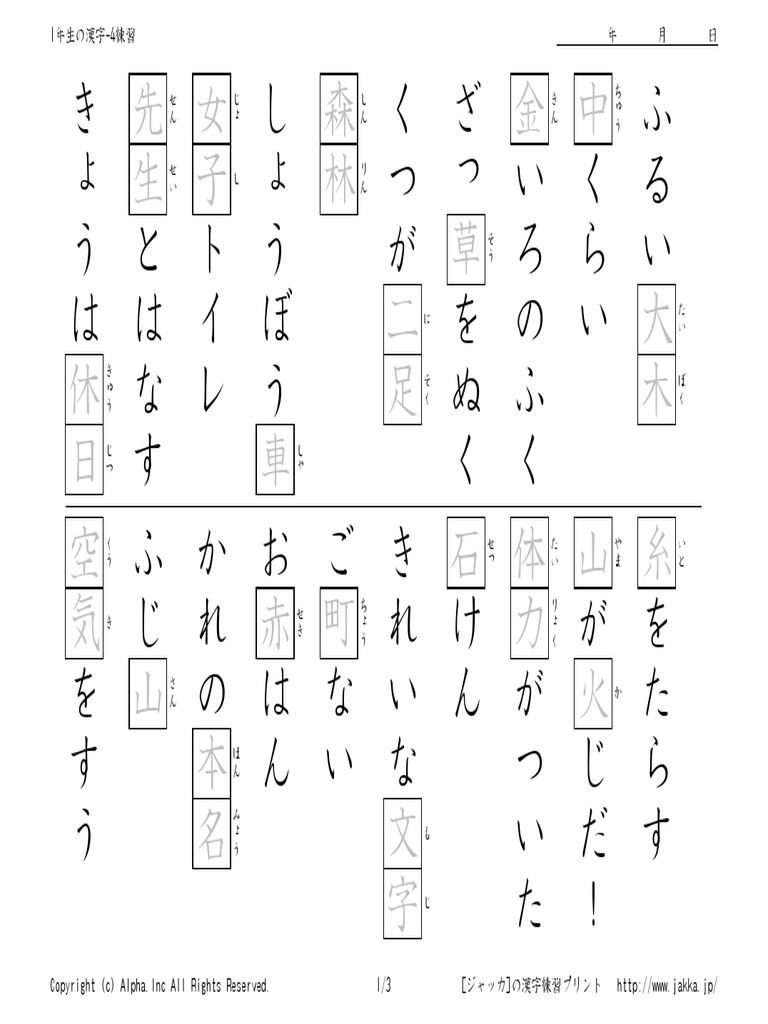 1年生の漢字-4練習
年 月 日
ふるい大木
たいぼく
中くらい
ちゅう
金いろのふく
きん
ざっ草をぬく
そう
くつが二足
にそく
森林
しんりん
しょうぼう車
しゃ
女子トイレ
じょし
先生とはなす
せんせい
きょうは休日
きゅうじつ
糸をたらす
いと
山が火じだ！
やまか
体力がついた
たいりょく
石けん
せっ
きれいな文字
もじ
ご町ない
ちょう
お赤はん
せき
かれの本名
ほんみょう
ふじ山
さん
空気をすう
くうき
Copyright (c) Alpha.Inc All Rights Reserved.
1/3
[ジャッカ]の漢字練習プリント http://www.jakka.jp/